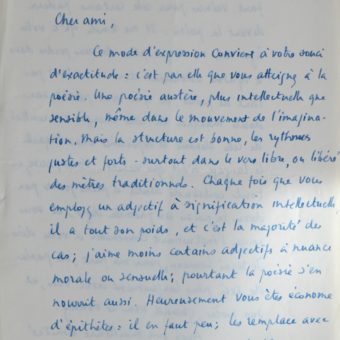 Cher ami,
Ce mode d'expression convient à votre souci
d'exactitude : c'est par elle que vous atteignez à la
poésie. Une poésie austère, plus intellectuelle que
sensible, même dans le mouvement de l'imagina-
tion. Mais la structure est bonne, les rythmes
justes et forts - surtout dans le vers libre, ou libéré
des mètres traditionnels. Chaque fois que vous
employez un adjectif à signification intellectuelle,
il a tout son poids, et c'est la majorité des
cas ; j'aime moins certains adjectifs à nuance
morale ou sensuelle ; pourtant la poésie s'en
nourrit aussi. Heureusement vous êtes économe
d'épithètes : il en faut peu ; les remplace avec